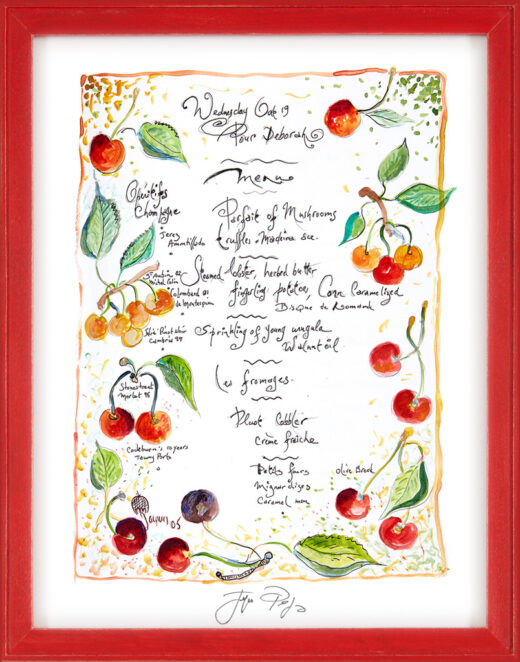 Wednesday Oct 19
Pour Deborah
menu
Apéritifs
Champagne
Jerez
Amontillado
Parfait of Mushrooms
truffles. Madeira sce.
Steamed lobster, herbed butter
fingerling potatoes, Corn Caramelized
Bisque de Homard
St Aubin 02
Colombard 01
Sprinkling of young arugula
Walnut oil
Les fromages.
Stonestreet
Merlot 96
Pluot Cobbler
Crème fraîche
Cockburn's 10 years
Tawny Porto
Petits fours
Mignardises
Caramel
Olive Bread
05